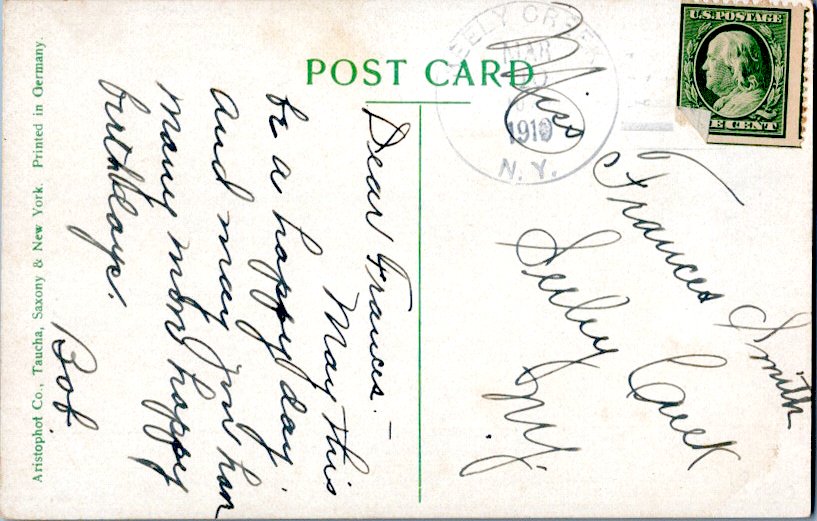 POST CARD
U.S. POSTAGE
E CENT
EELY CREEK
MAR
1910
N. Y.
Dear Frances. —
May this
be a happy day.
and may you han
many mon happy
birthdays.
Bob.
Miss
Frances Smith
Seeley Creek
N.Y.
Aristophot Co., Taucha, Saxony & New York. Printed in Germany.